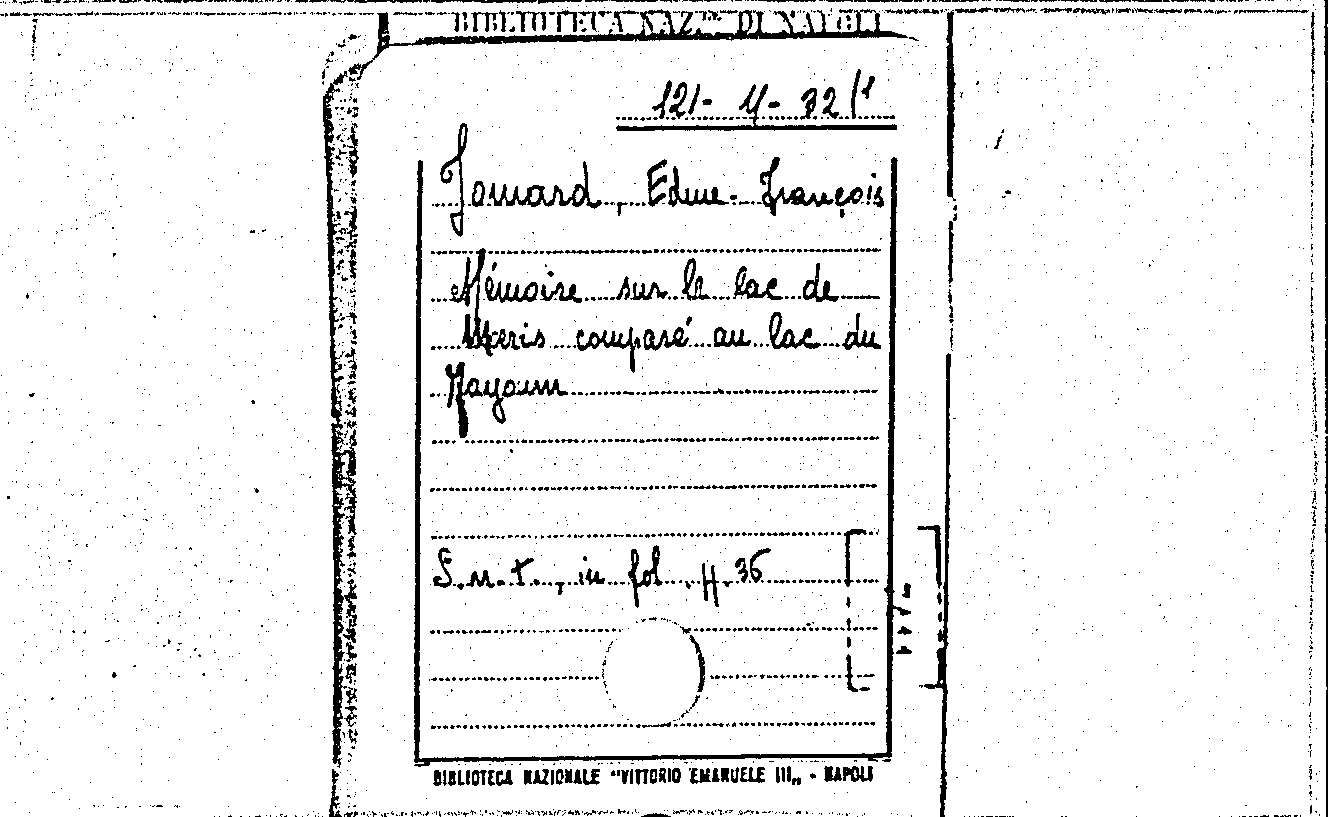 BIBLIOTECA NAZ.le DI NAPOLI
121- Y- 32/1
Jomard, Edme-François
Mémoire sur le lac de
Mœris comparé au lac du
Fayoum
S.n.t., in fol. p. 36
BIBLIOTECA NAZIONALE "VITTORIO EMANUELE III„ - NAPOLI